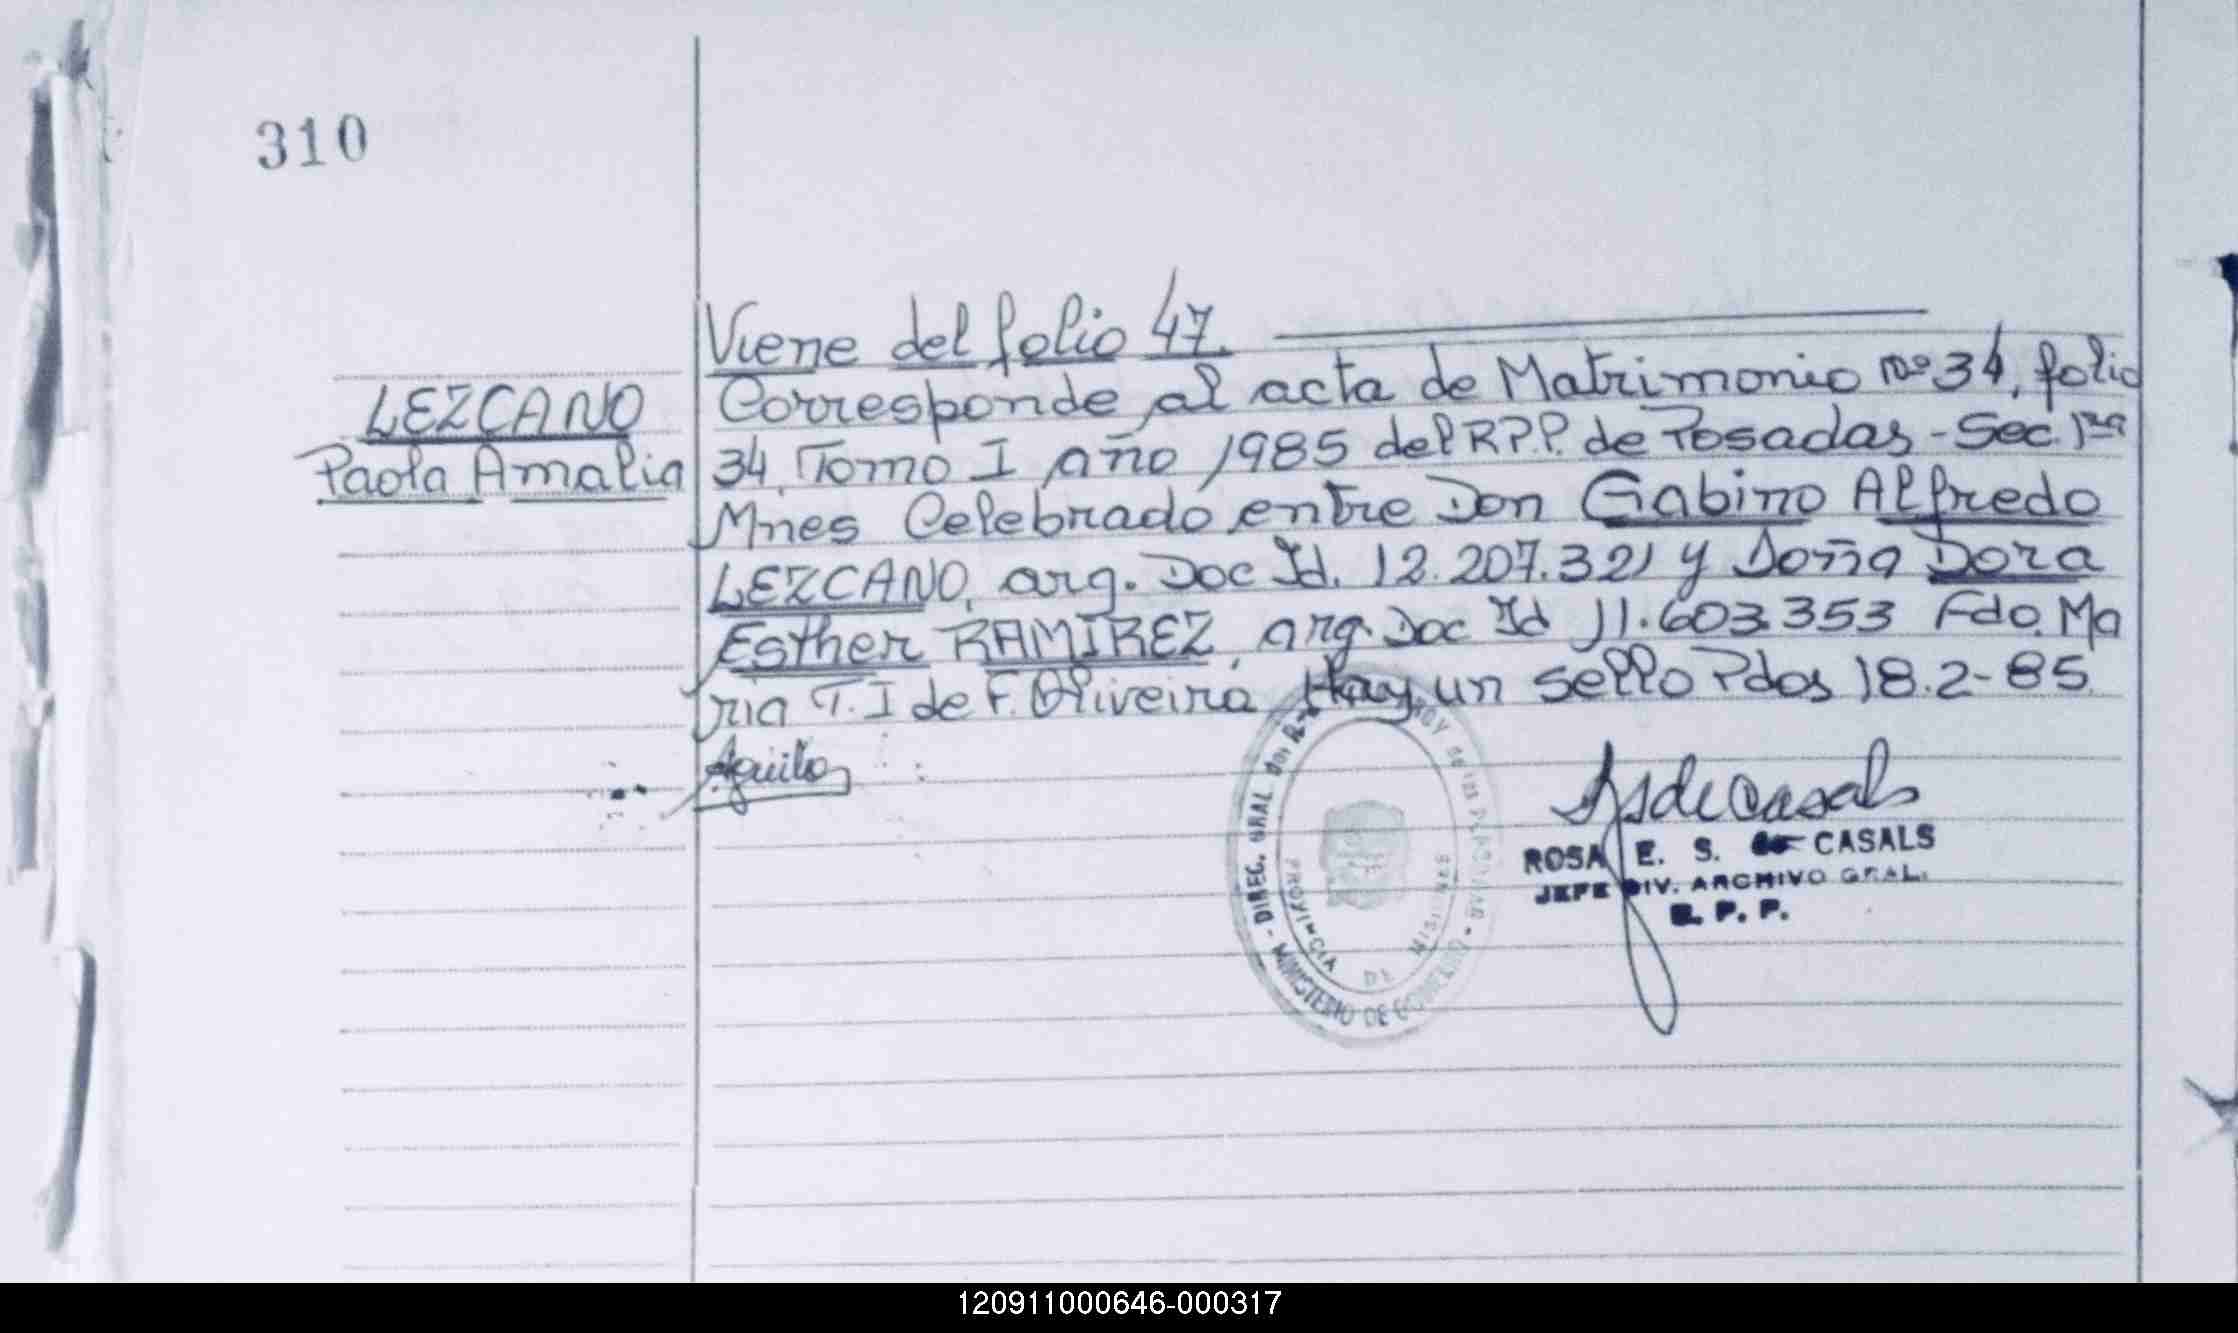 310
Viene del folio 47.
LEZCANO
Paola Amalia
Corresponde al acta de Matrimonio nº 34, folio
34, Tomo I año 1985 del R.P.P. de Posadas - Sec. 1ra
Mnes Celebrado entre Don Gabino Alfredo
LEZCANO, arg. Doc Id. 12.207.321 y Doña Dora
Esther RAMIREZ, arg. Doc Id 11.603.353 Fdo. Ma
ria T. I de F. Oliveira Hay un sello Pdos 18.2-85.
DIREC. GRAL DEL
MINISTERIO DE GOBIERNO
PROVINCIA DE MISIONES
ROSA E. S. de CASALS
JEFE DIV. ARCHIVO GRAL.
R. P. P.
120911000646-000317